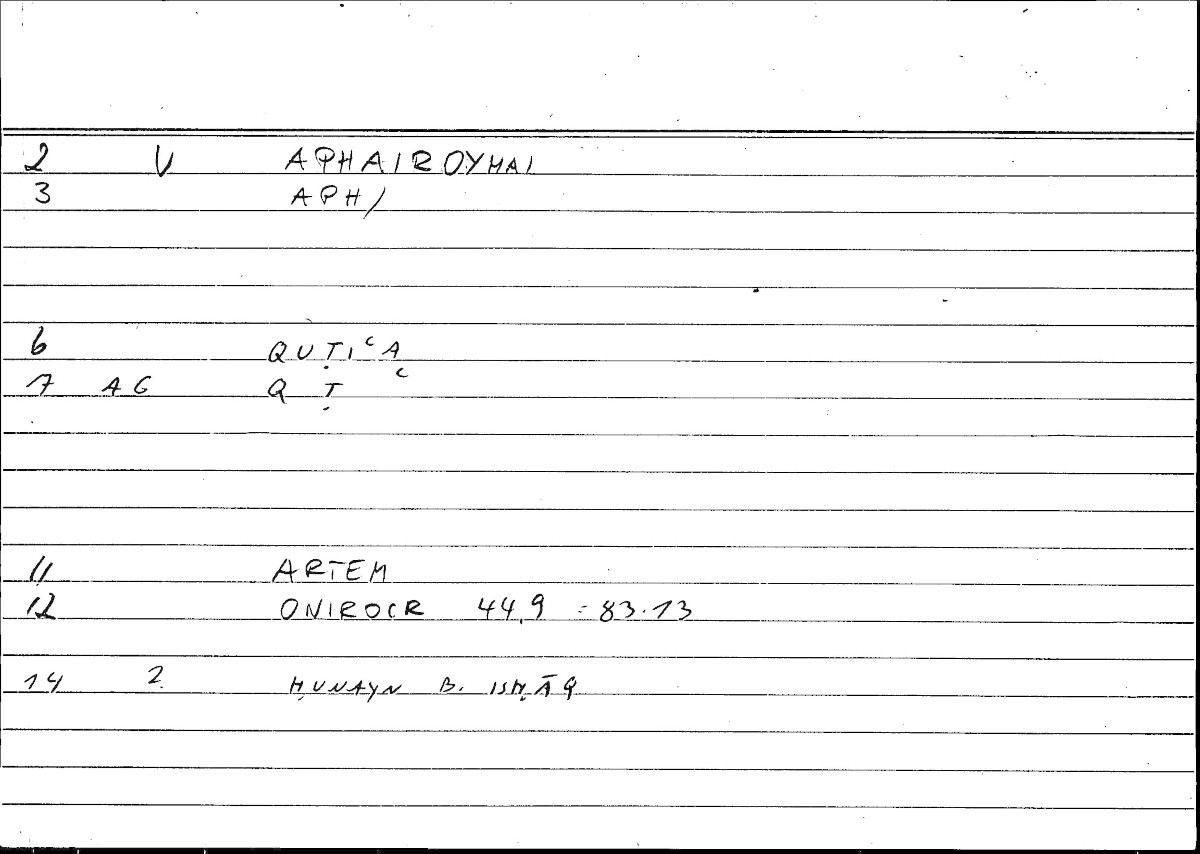 2 V APHAIROYMAI
3 APH/
6 QUṬIʿA
7 AG Q Ṭ ʿ
11 ARTEM
12 ONIROCR 44,9 = 83.13
14 2 ḤUNAYN B. ISḤĀQ